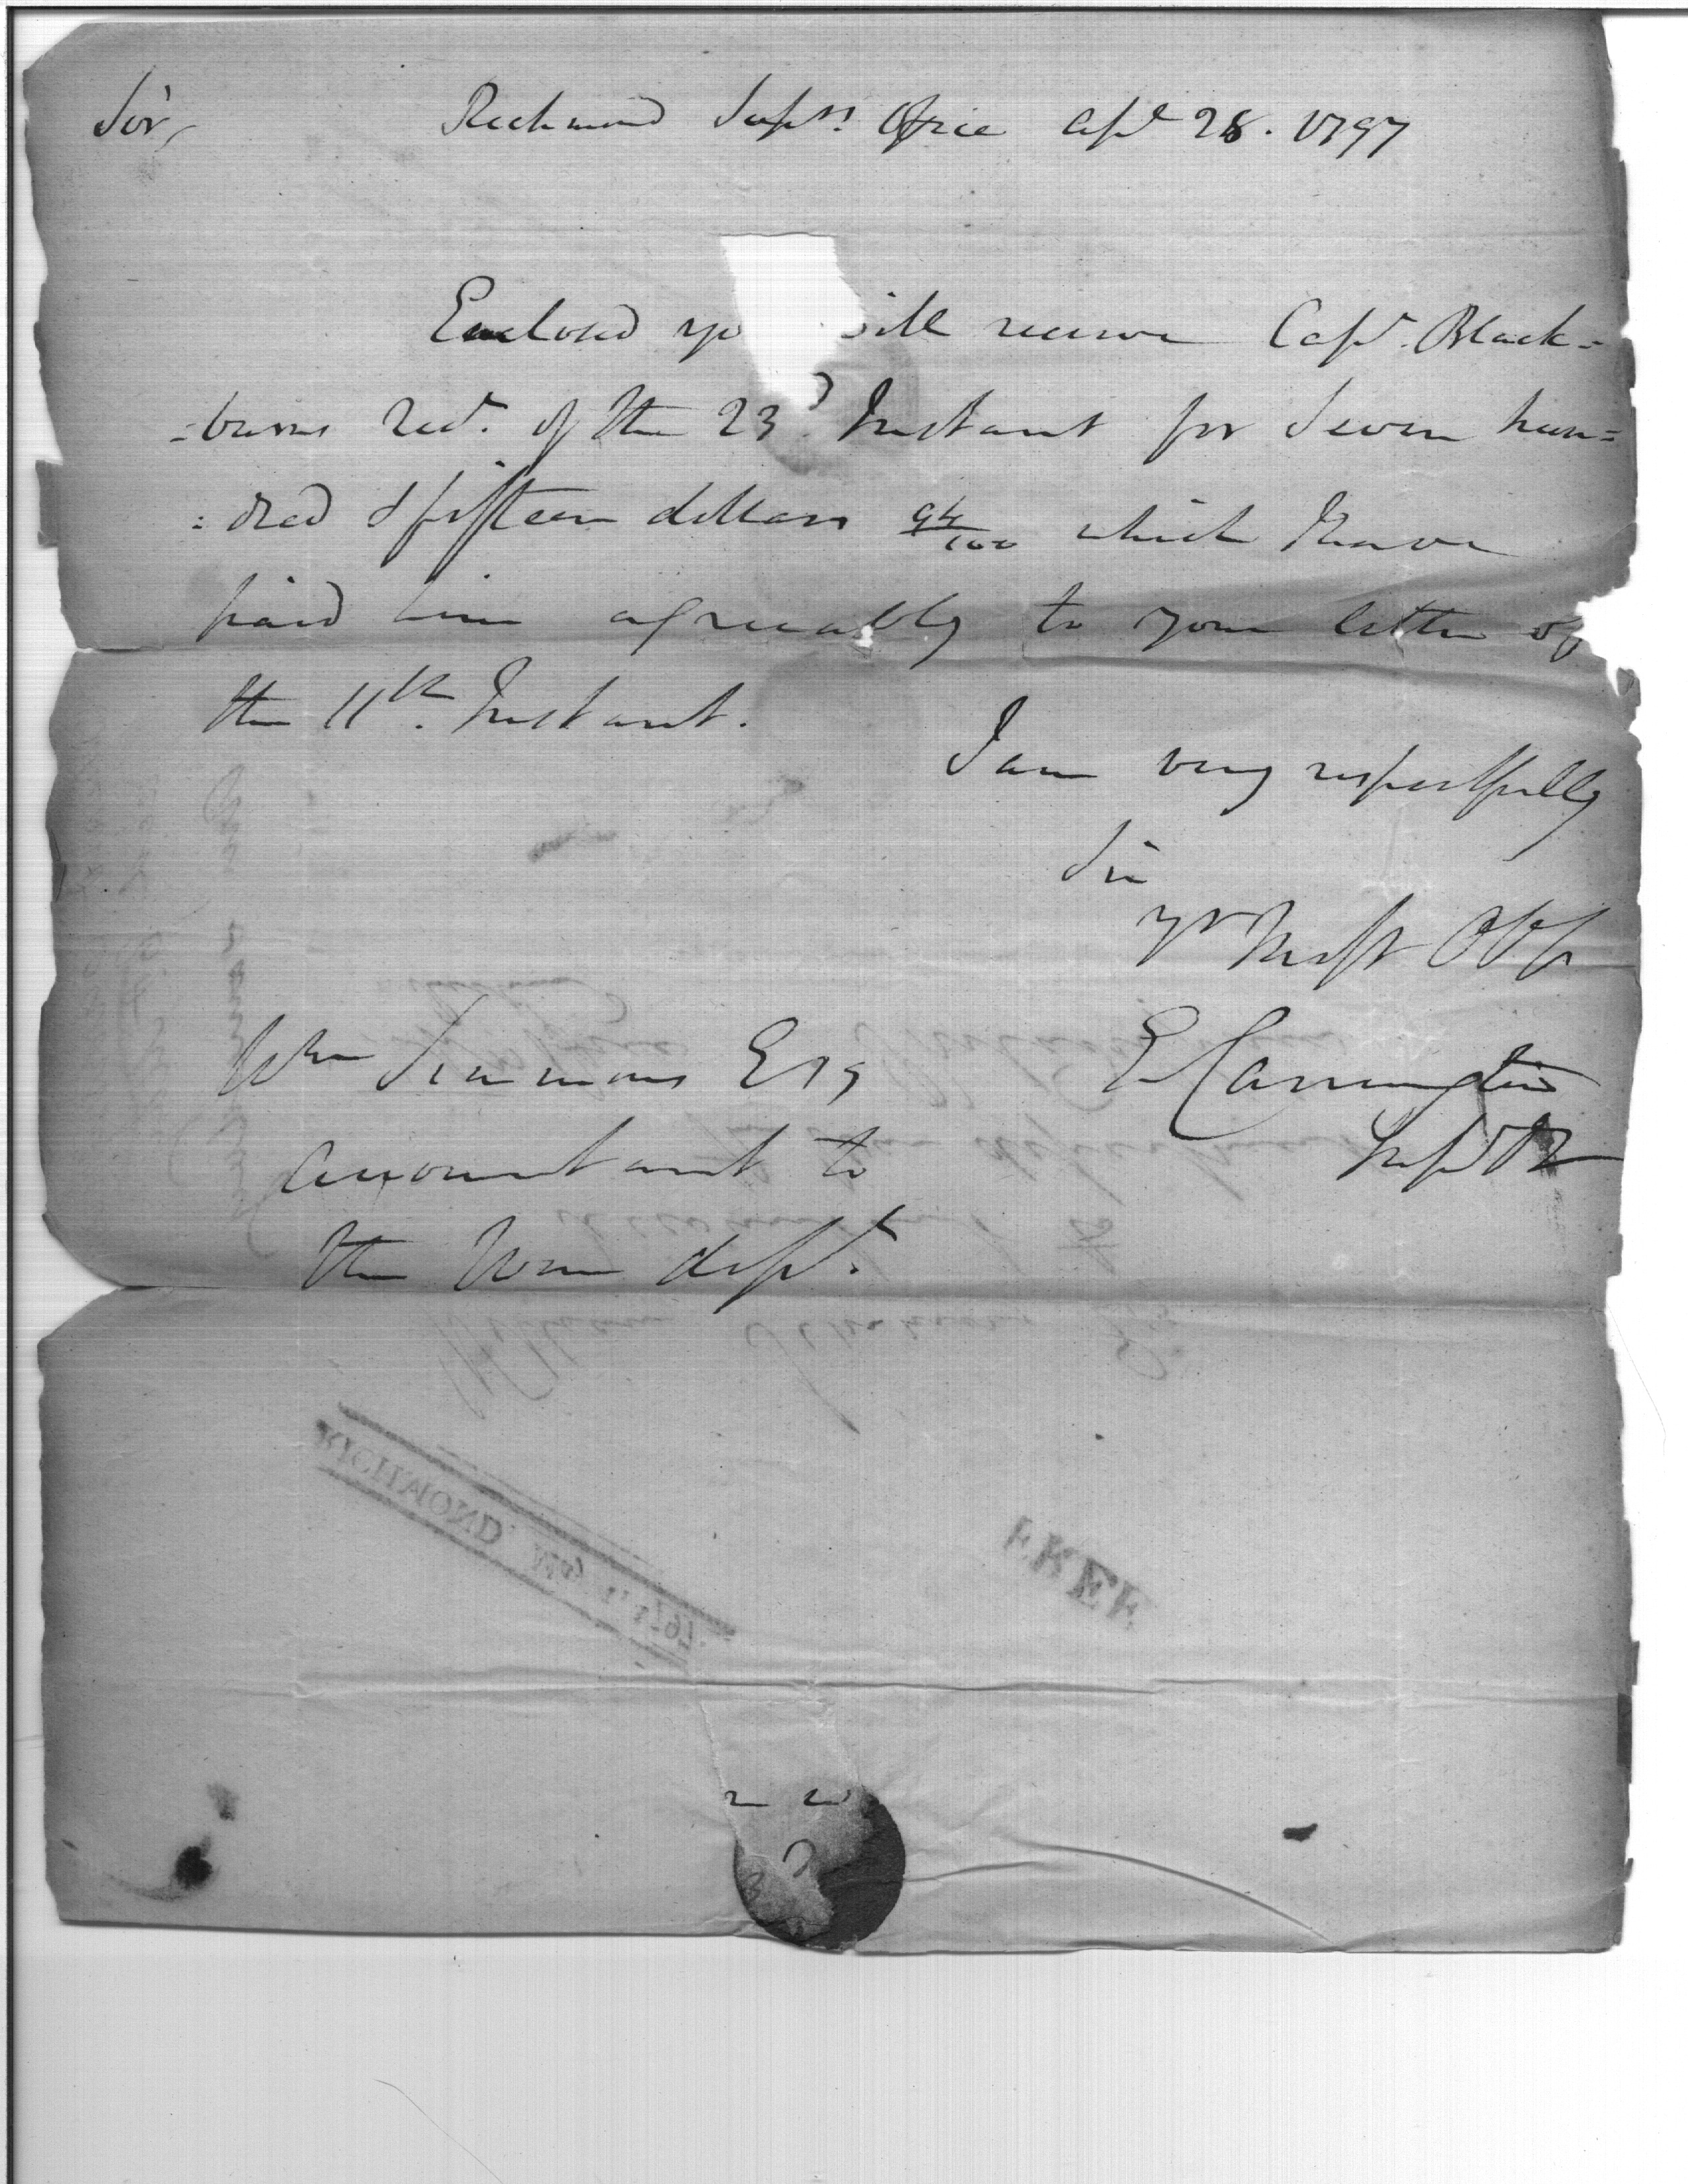 Sir, Richmond Suprs. Office Apl 28. 1797
Enclosed yo will receive Capt. Black=
=burns Rect. of the 23d. Instant for Seven hun=
=dred & fifteen dollars 94/100 which I have
paid him agreeably to your letter of
the 11th. Instant.
I am very respectfully
Sir
Yr Most Obt
Wm Simmons Esq E Carrington
Accountant to
the War dept.
RICHMOND May 1, 1797.
FREE